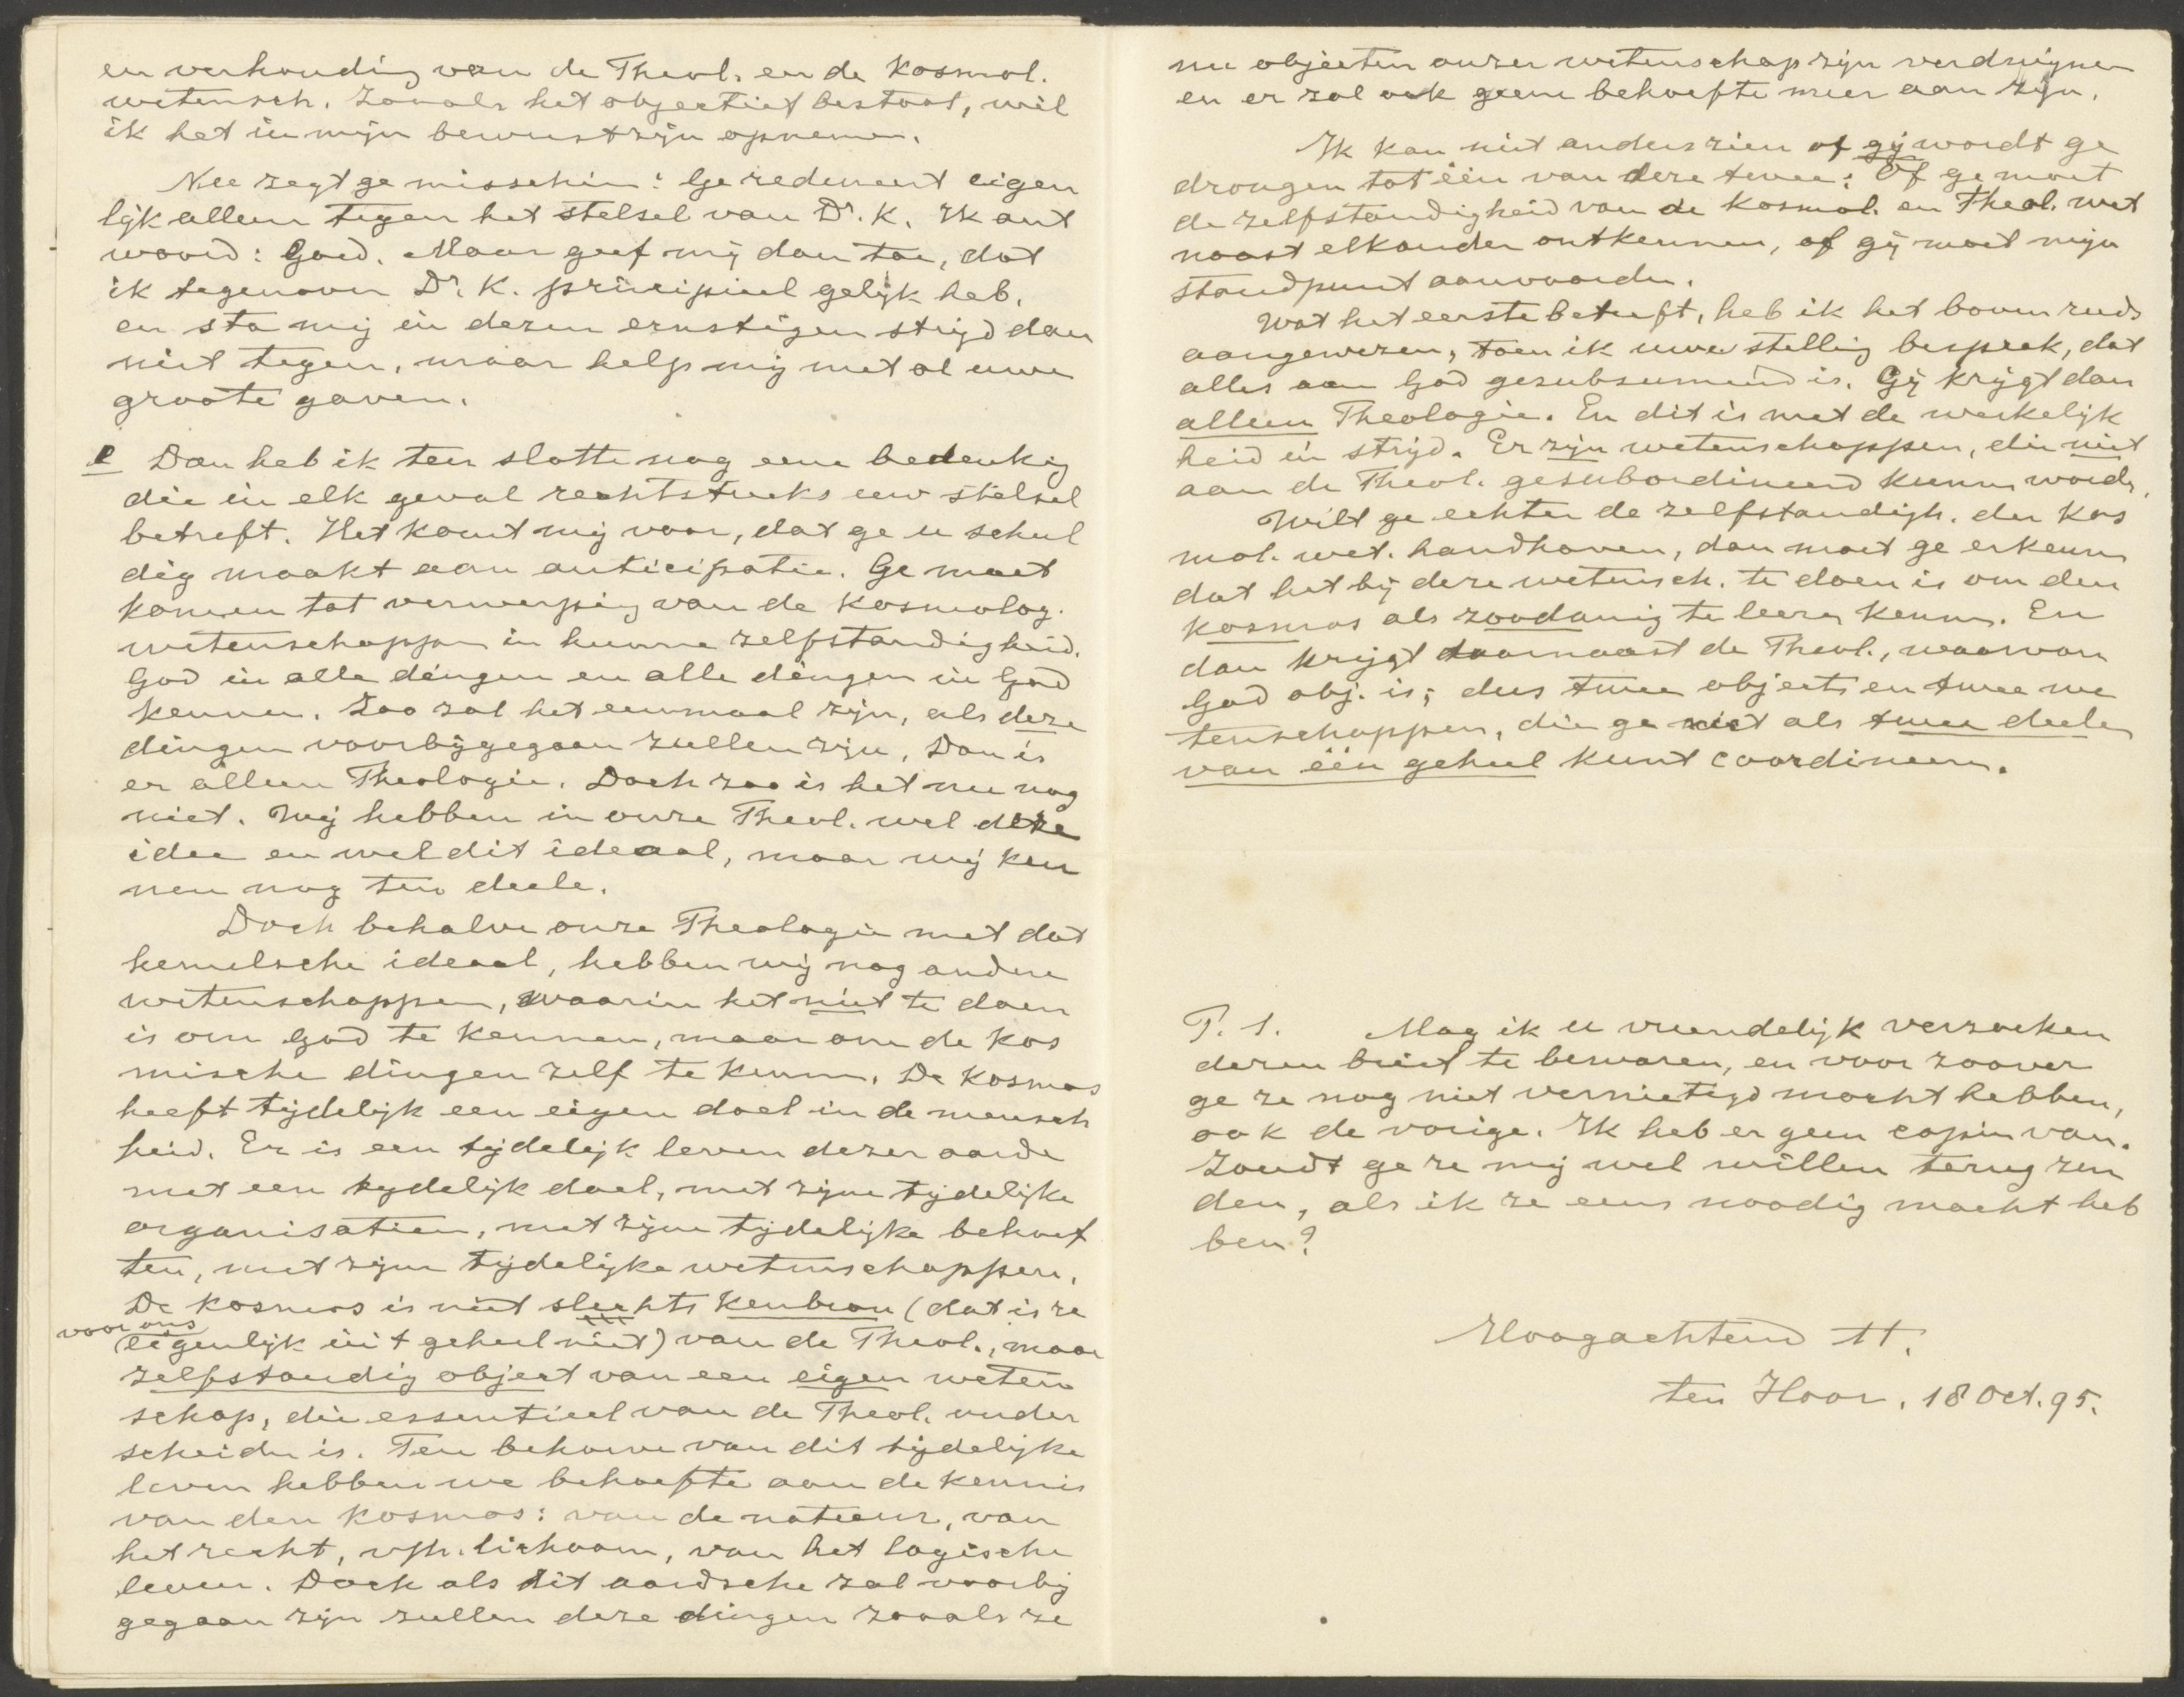 en verhouding van de Theol. en de Kosmol.
wetensch. zooals het objectief bestaat, wil
ik het in mijn bewustzijn opnemen.
Nee zegt ge misschien: Ge redeneert eigen
lijk alleen tegen het stelsel van Dr. K. Ik ant
woord: Goed. Maar geef mij dan toe, dat
ik tegenover Dr. K. principieel gelijk heb.
en sta mij in dezen ernstigen strijd dan
niet tegen, maar help mij met al uwe
groote gaven.
Dan heb ik ten slotte nog eene bedenking
die in elk geval rechtstreeks uw stelsel
betreft. Het komt mij voor, dat ge u schul
dig maakt aan anticipatie. Ge moet
komen tot verwerping van de Kosmolog.
wetenschappen in hunne zelfstandigheid.
God in alle dingen en alle dingen in God
kennen. Zoo zal het eenmaal zijn, als deze
dingen voorbijgegaan zullen zijn. Dan is
er alleen Theologie. Doch zoo is het nu nog
niet. Wij hebben in onze Theol. wel deze
idee en wel dit ideaal, maar wij ken
nen nog ten deele.
Doch behalve onze Theologie met dat
hemelsche ideaal, hebben wij nog andere
wetenschappen, waarin het niet te doen
is om God te kennen, maar om de kos
mische dingen zelf te kennen. De Kosmos
heeft tijdelijk een eigen doel in de mensch
heid. Er is een tijdelijk leven dezer aarde
met een tydelijk doel, met zijne tijdelijke
organisatien, met zijne tijdelijke behoef
ten, met zijne tijdelijke wetenschappen.
De Kosmos is niet slechts kenbron (dat is ze
voor ons
eigenlijk in 't geheel niet) van de Theol., maar
zelfstandig object van een eigen weten
schap, die essentieel van de Theol. onder
scheiden is. Ten behoeve van dit tijdelijke
leven hebben we behoefte aan de kennis
van den Kosmos: van de natuur, van
het recht, v/h. lichaam, van het logische
leven. Doch als dit aardsche zal voorbij
gegaan zijn zullen deze dingen zooals ze
nu objecten onzer wetenschap zijn verdwijnen
en er zal ook geene behoefte meer aan zijn.
Ik kan niet anders zien of gij wordt ge
drongen tot één van deze twee: Of ge moet
de zelfstandigheid van de Kosmol. en Theol. wet
naast elkander ontkennen, of gij moet mijn
standpunt aanvaarden.
Wat het eerste betreft, heb ik het boven reeds
aangewezen, toen ik uwe stelling besprak, dat
alles aan God gesubsumeerd is. Gij krijgt dan
alleen Theologie. En dit is met de werkelijk
heid in strijd. Er zijn wetenschappen, die niet
aan de Theol. gesubordineerd kunnen worden.
Wilt ge echter de zelfstandigh. der Kos
mol. wet. handhaven, dan moet ge erkennen
dat het bij deze wetensch. te doen is om den
kosmos als zoodanig te leeren kennen. En
dan krijgt daarnaast de Theol., waarvan
God obj. is; dus twee objecten en twee we
tenschappen, die ge niet als twee deelen
van één geheel kunt coordineeren.
P. S. Mag ik u vriendelijk verzoeken
dezen brief te bewaren, en voor zoover
ge ze nog niet vernietigd mocht hebben,
ook de vorige. Ik heb er geen copie van.
Zoudt ge ze mij wel willen terug zen
den, als ik ze eens noodig mocht heb
ben?
Hoogachtend tt.
ten Hoor, 18 Oct. 95.